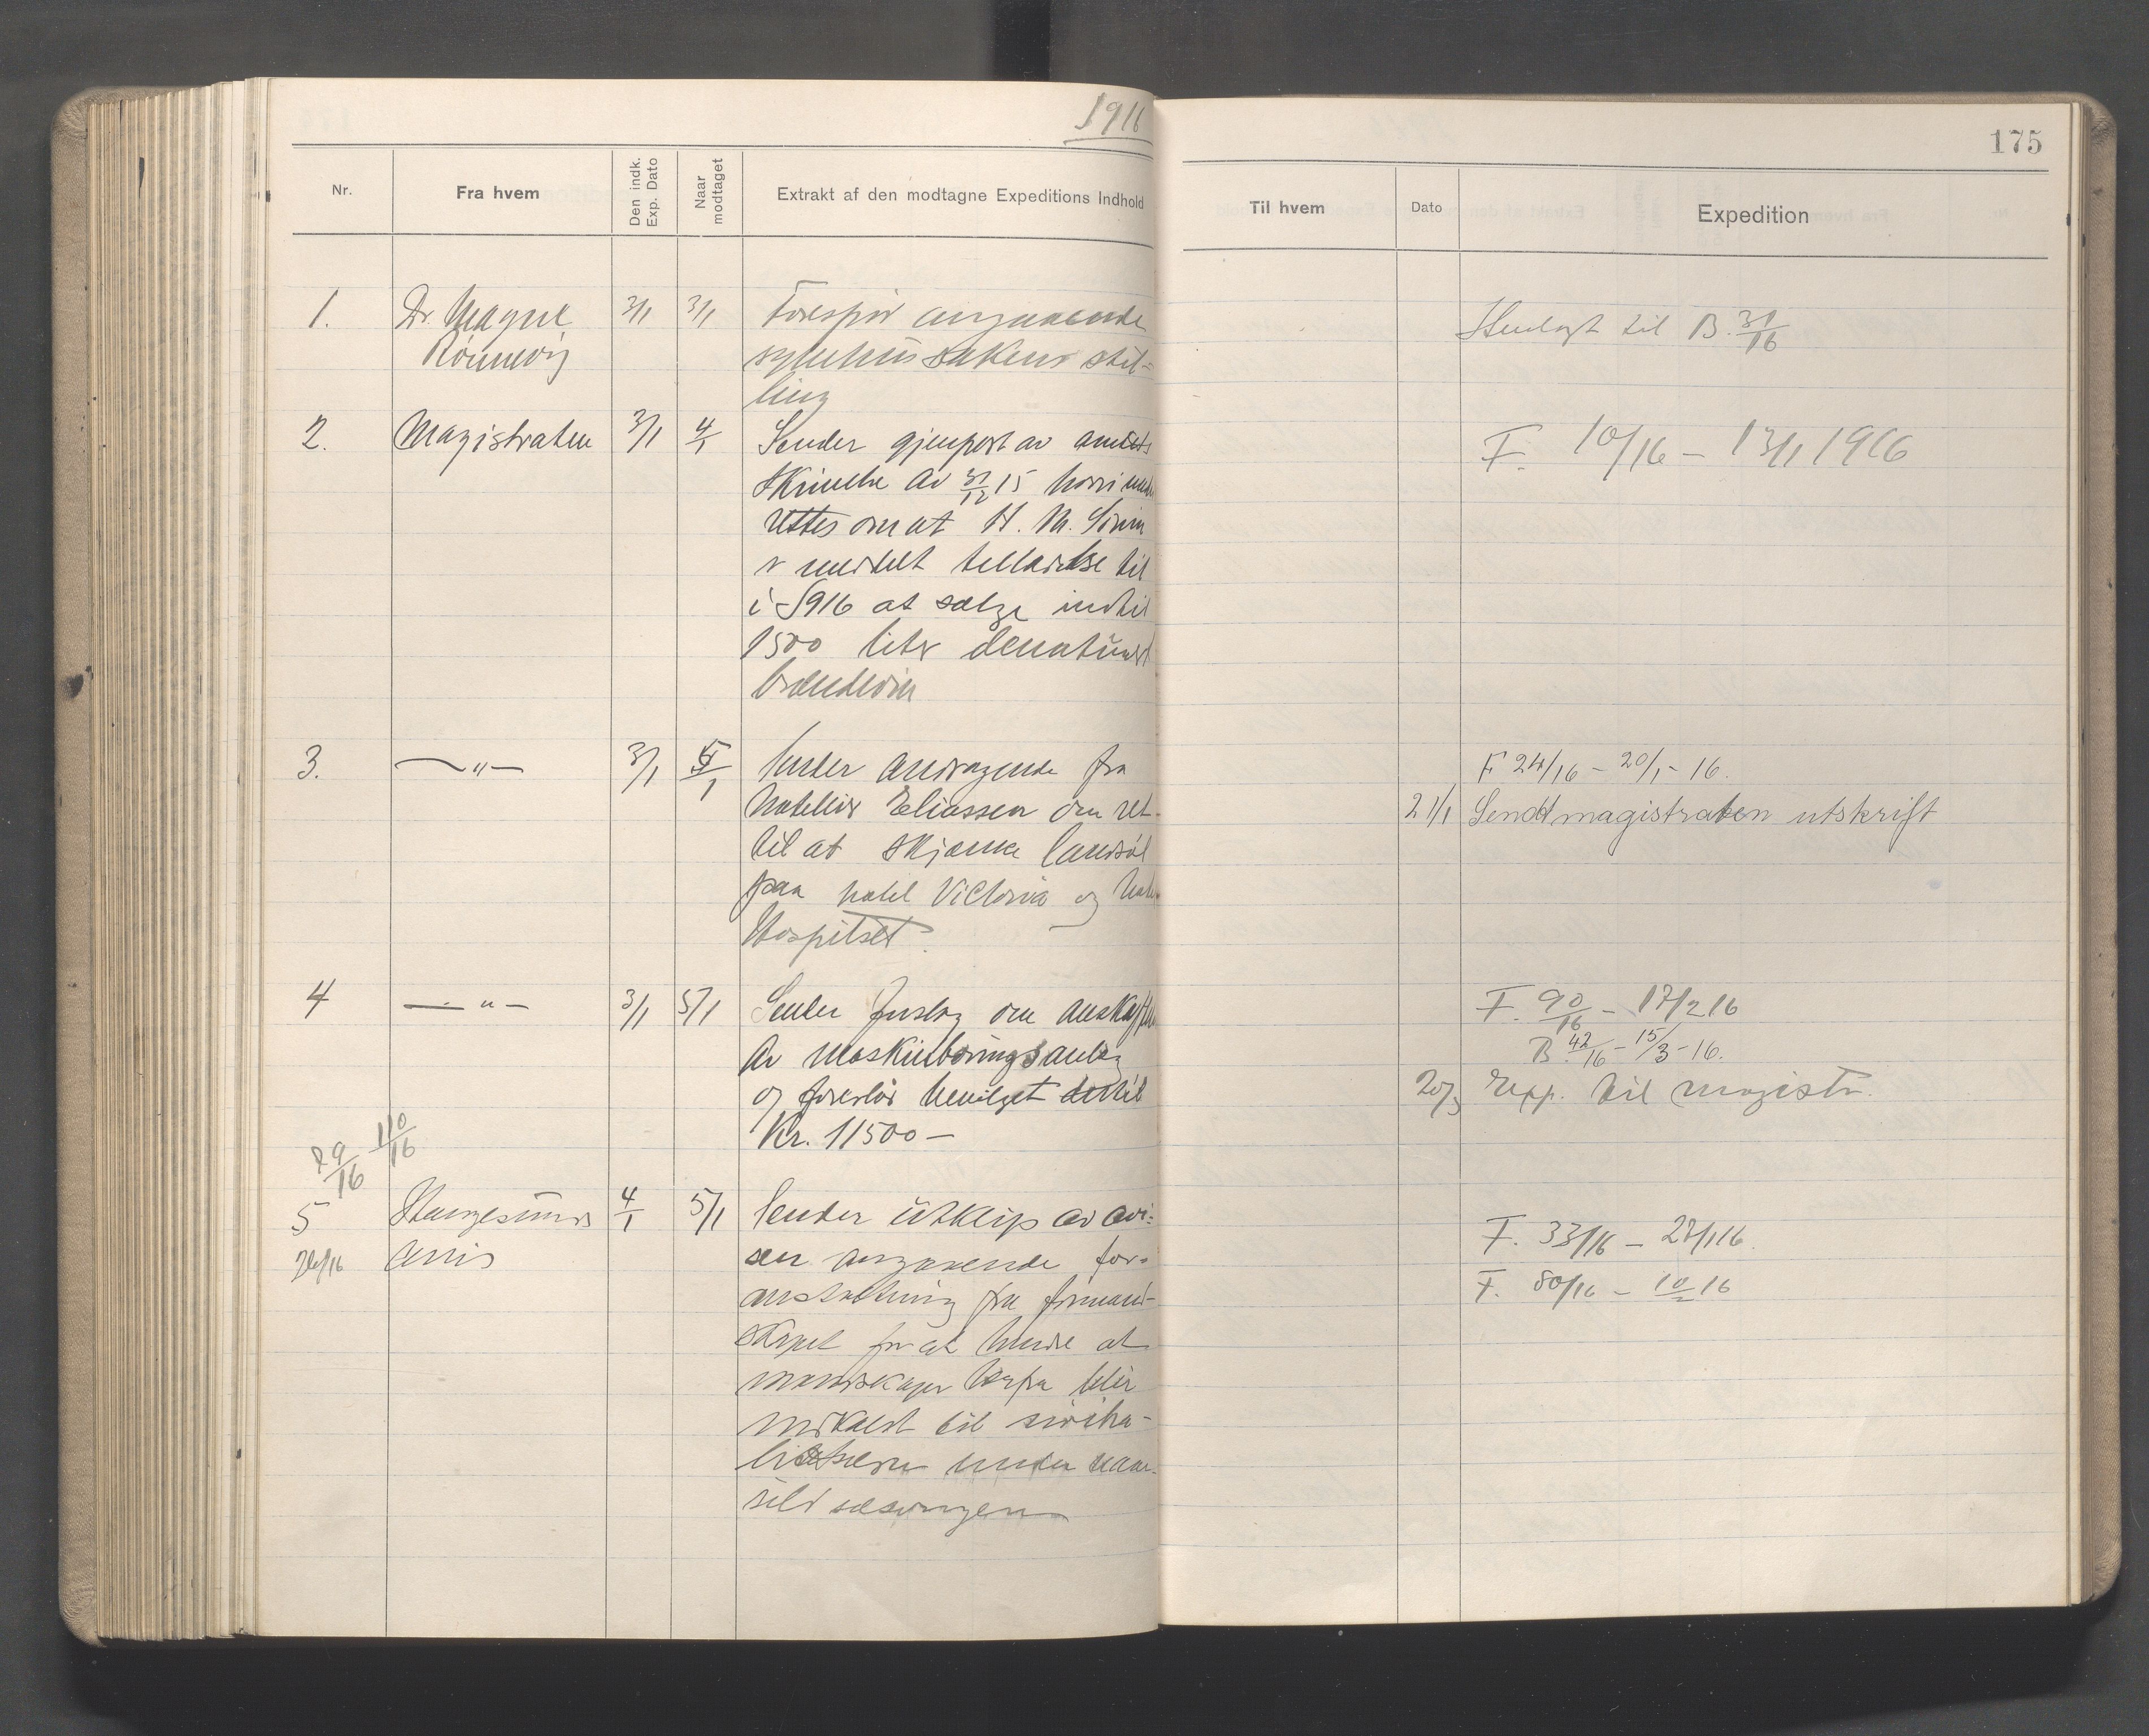 1916
175
Nr.
Fra hvem
Den indk. Exp. Dato
Naar modtaget
Extrakt af den modtagne Expeditions Indhold
Til hvem
Dato
Expedition
1. Dr. Magne 3/1 3/1 Forespør angaaende
Rønnevig sykehussakens stil-
ling
Henlagt til B. 31/16
2. Magistraten 3/1 4/1 Sender gjenpart av amtets
skrivelse av 31/12 15 hvori under
rettes om at H. M.
er meddelt tilladelse til
i 1916 at sælge indtil
1500 liter denaturert
brændevin
F. 10/16 - 13/1 1916
3. — " — 3/1 5/1 Sender andragende fra
hotelleier Eliassen om ret
til at skjænke landsøl
paa hotel Victoria og
Hospitset.
F 24/16 - 20/1 - 16.
21/1 Sendt magistraten utskrift
4 — " — 3/1 5/1 Sender forslag om anskaffelse
av maskinboringsanlæg
og foreslår bevilget dertil
Kr. 11500 —
F. 90/16 - 17/2 16
B. 42/16 - 15/3 - 16.
20/3 Exp. til magistr.
29/16 110/16
5 Haugesunds 4/1 5/1 Sender utklip av avi-
26/16 avis sen angaaende for-
anstaltning fra formand-
skapet for at hindre at
mandskaper herfra blir
indkaldt til
under vaar-
sild sæsongen
F. 33/16 - 27/1 16.
F. 80/16 - 10/2 16